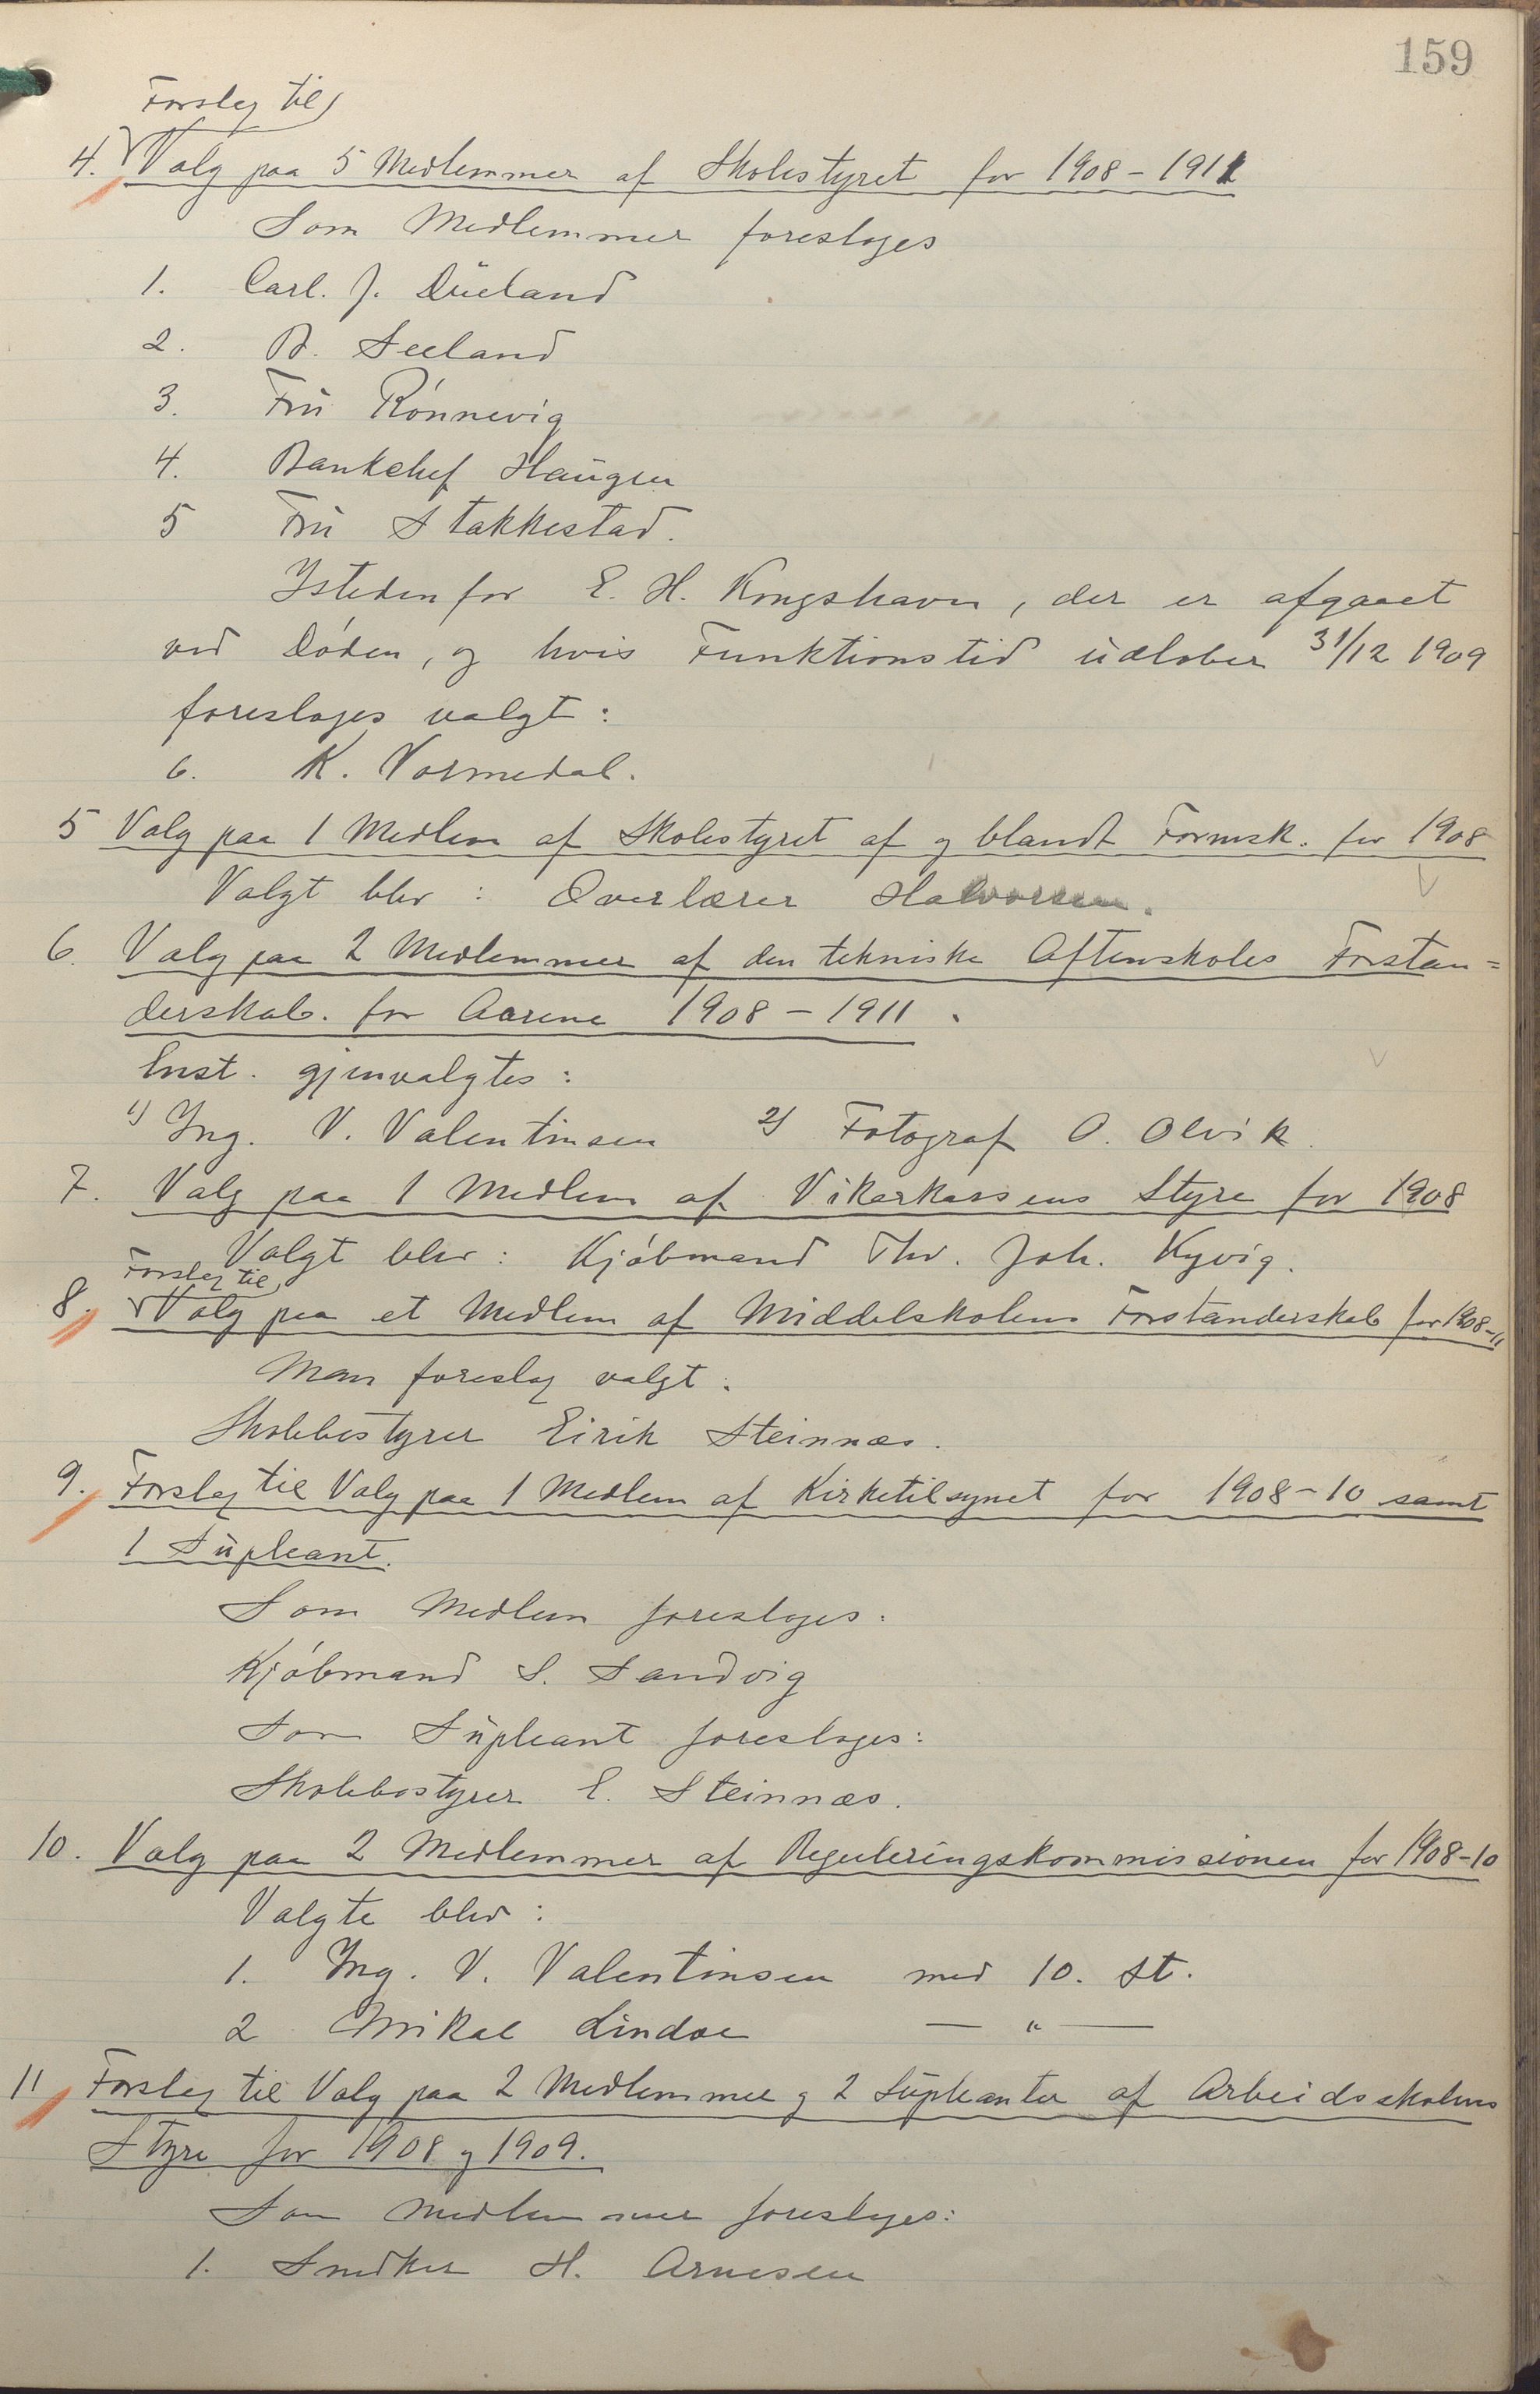 159
Forslag til
4. Valg paa 5 Medlemmer af Skolestyret for 1908-1911
Som Medlemmer foreslages
1. Carl. J. Dueland
2. B. Seeland
3. Fru Rönnevig
4. Bankchef Haugen
5 Fru Stakkestad.
Istedenfor E. H. Kongshavn, der er afgaaet
ved Döden, og hvis Funktionstid udlober 31/12 1909
foreslages valgt:
6. K. Vormedal.
5 Valg paa 1 Medlem af Skolestyret af og blandt Formsk. for 1908
Valgt blev: Overlærer Halvorsen.
6. Valg paa 2 Medlemmer af den tekniske Aftenskoles Forstan=
derskab. for Aarene 1908-1911.
Enst. gjenvalgtes:
1) Ing. V. Valentinsen 2) Fotograf O. Olvik.
7. Valg paa 1 Medlem af Vikarkassens Styre for 1908
Valgt blev: Kjöbmand Thv. Joh. Kyvig.
Forslag til
8. Valg paa et Medlem af Middelskolens Forstanderskab for 1908-11
Man foreslog valgt:
Skolebestyrer Eirik Steinnæs.
9. Forslag til Valg paa 1 Medlem af Kirketilsynet for 1908-10 samt
1 Supleant.
Som Medlem foreslages:
Kjöbmand S. Sandvig
Som Supleant foreslages:
Skolebestyrer E. Steinnæs.
10. Valg paa 2 Medlemmer af Reguleringskommissionen for 1908-10
Valgte blev:
1. Ing. V. Valentinsen med 10. St.
2 Mikal Lindoe — " —
11 Forslag til Valg paa 2 Medlemmer og 2 Supleanter af Arbeidsskolens
Styre for 1908 og 1909.
Som Medlemmer foreslages:
1. Snedker H. Arnesen